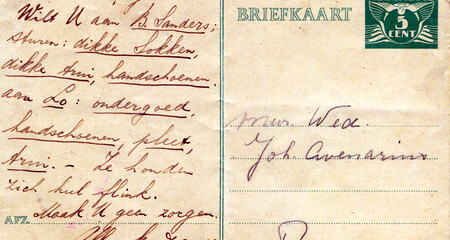 Wilt U aan B. Sanders;
sturen: dikke Sokken,
dikke Arm, handschoenen.
aan Lo: ondergoed,
handschoenen,
Arm. – Ze houden
zich heel flink.
AFZ. Maak U geen zorgen.
BRIEFKAART
5
CENT
Mevr. Wed.
Joh. Avenarius